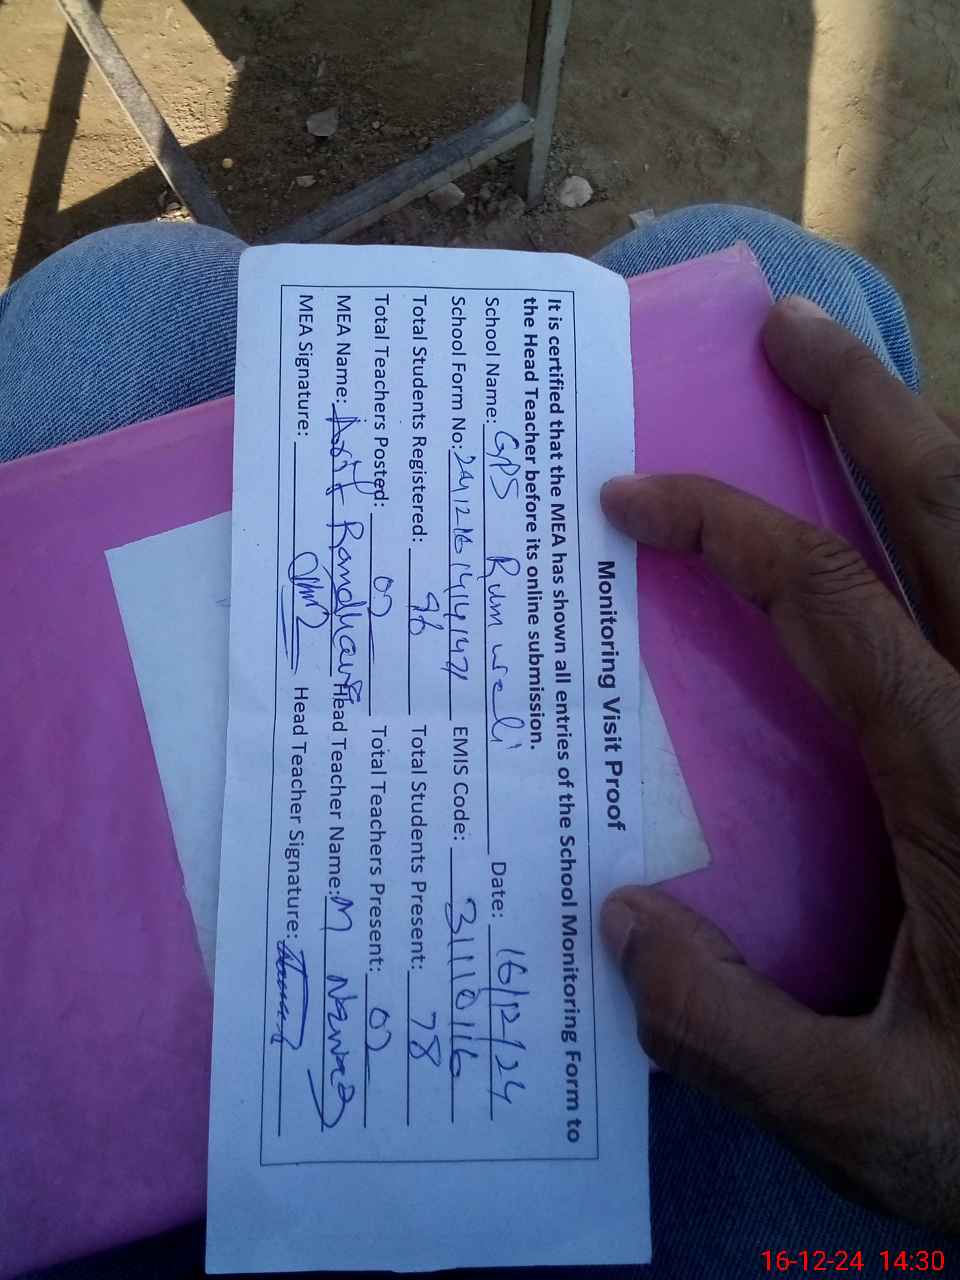 Monitoring Visit Proof
It is certified that the MEA has shown all entries of the School Monitoring Form to
the Head Teacher before its online submission.
School Name: GPS Rumwali Date: 16/12/24
School Form No: EMIS Code: 31110116
Total Students Registered: 96 Total Students Present: 78
Total Teachers Posted: 02 Total Teachers Present: 02
MEA Name: Asif Randhawa Head Teacher Name: M Nawaz
MEA Signature: Head Teacher Signature:
16-12-24 14:30